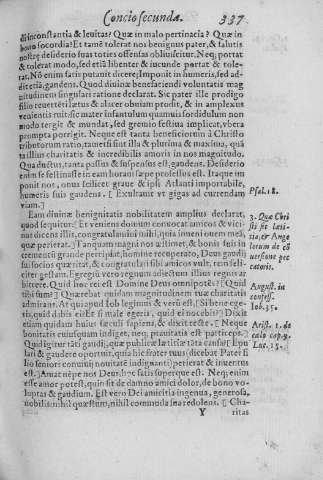 Concio secunda. 337
di inconstantia & leuitas? Quæ in malo pertinacia? Quæ in
bono socordia? Et tamẽ tolerat nos benignus pater, & salutis
nostræ desiderio suas toties offensas obliuiscitur. Nec; portat
& tolerat modo, sed etiã libenter & iucunde portat & tole-
rat. Nõ enim satis putauit dicere; Imponit in humeris, sed ad-
dit etiã, gaudens. Quod diuinæ benefaciendi voluntatis mag
nitudinem singulari ratione declarat. Sic pater ille prodigo
filio reuertẽti lætus & alacer obuiam prodit, & in amplexus
venientis ruit: sic mater infantulum quamuis sordidulum non
modo tergit & mundat, sed gremio festiua amplicat, vbera
prompta porrigit. Neque est tanta beneficiorum à Christo
tributorum ratio, tametsi sint illa & plurima & maxima, quã-
ta illius charitatis & incredibilis amoris in nos magnitudo.
Qua ductus, tanta passus & suspensus est, gaudens. Desiderio
enim se festinasse in eam horam sæpe professus est. Itaque im
ponit nos, onus scilicet graue & ipsi Atlanti importabile,
humeris suis gaudens. [Exultauit vt gigas ad currendam
viam.]
Psal. 18.
Eam diuinæ benignitatis nobilitatem amplius declarat,
quod sequitur: [Et veniens domum conuocat amicos & vici-
nos, dicens illis, congratulamini mihi, quia inueni ouem meã,
quæ perierat.] Tanquam magni nos æstimet, & bonis suis in
crementũ grande percipiat, homine recuperato, Deus gaudij
sui socios quæritat, & congratulari sibi amicos vult, rem felici-
ter gestam. Egregiũ vero regnum adiectum illius regni ar
bitrere. Quid hoc rei est Domine Deus omnipotẽs? [Quid
tibi sum?] Quærebat quidam magnitudinem tuæ charitatis
admirans. At quod Iob legimus & verũ est, [Si bene ege-
ris, quid dabis ei: & si male egeris, quid ei nocebis?] Dixit
etiam quidam huius sæculi sapiens, & dixit recte. [Neque
bonitatis cuiusquam indiget, neq; prauitatis est particeps.]
Quid igitur tãti gaudij, quæ publicæ lætitiæ tãta causa? [Epu
lari & gaudere oportuit, quia hic frater tuus (dicebat Pater fi
lio seniori conuiuij nouitatẽ indignanti) perierat & inuentus
est.] Amat nẽpe nos Deus, hoc satis superque est. Neq; enim
esse amor potest, quin sit de damno amici dolor, de bono vo-
luptas & gaudium. Est vero Dei amicitia ingenua, generosa,
nobilis: nihil quæstum, nihil commoda sua redolens. [Cha-
Y ritas
3. Quæ Chri
sti sit læti-
tia, & Ange
lorum de cõ
uersione pec
catoris.
August. in
confess.
Iob. 35.
Arist. 1. de
cælo cap. 9.
Luc. 15.